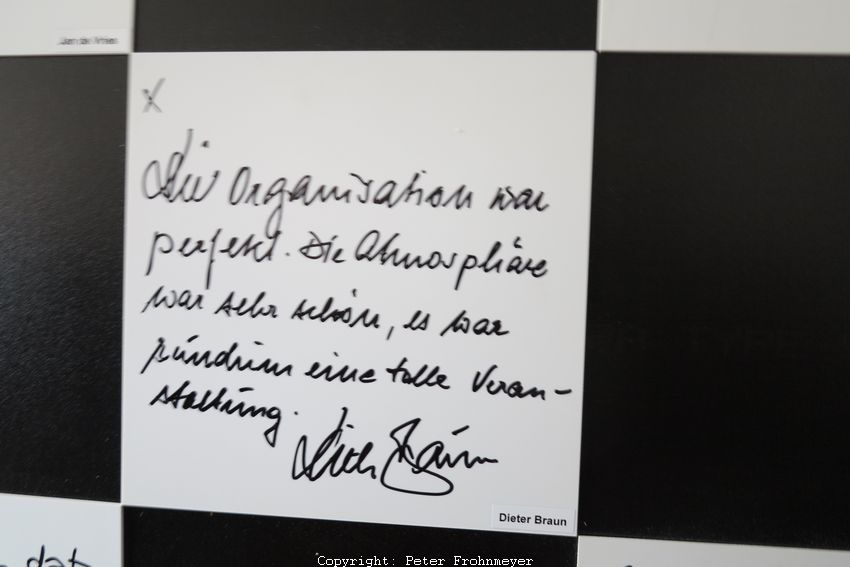 Jan de Vries
X
Die Organisation war
perfekt. Die Atmosphäre
war sehr schön, es war
rundrum eine tolle Veran-
staltung.
Dieter Braun
Dieter Braun
dat
Copyright: Peter Frohnmeyer